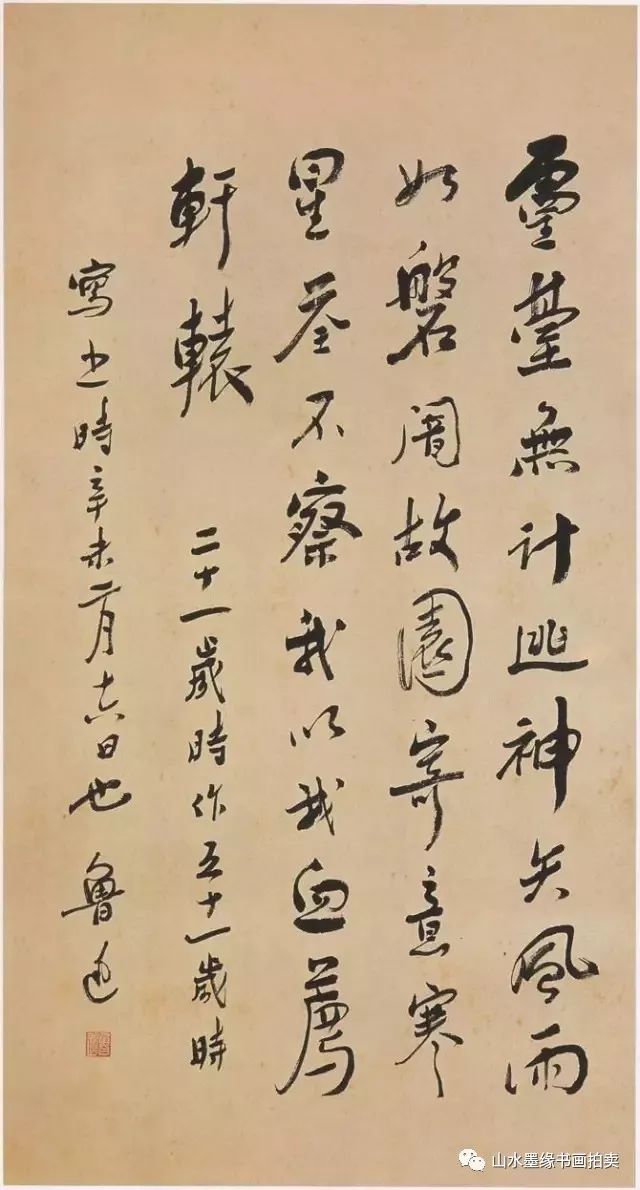 靈臺無計逃神矢風雨
如磐闇故園寄意寒
星荃不察我以我血薦
軒轅 二十一歲時作五十一歲時
寫之時辛未二月十六日也 魯迅
山水墨缘书画拍卖